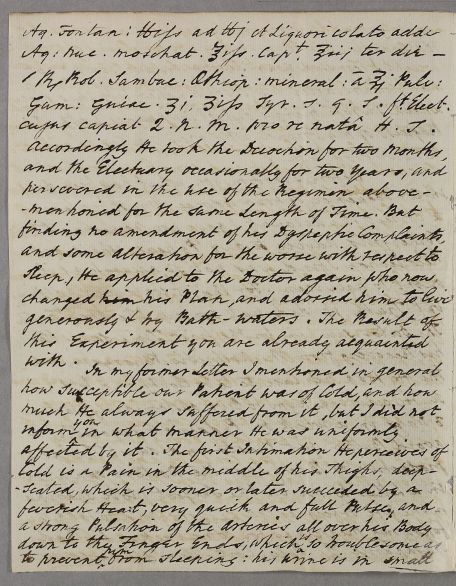 Aq. Fontan: ℔iſs ad ℔j et Liquori colato adde
Aq: Nuc. moschat. ℥iſs. Capt. ℥iij ter die —
/ ℞ Rob. Sambuc: Æthiop: mineral: a ℥j Pulv:
Gum: Guiac. ʒi, ʒiſs Syr. s. q. S. ft Elect.
cujus capiat 2. N. M. pro re natâ H. S.
Accordingly He took the Decoction for two Months,
and the Electuary occasionally for two Years, and
persevered in the use of the Regimen above-
-mentioned for the same Length of Time. But
finding no amendment of his Dyspeptic Complaints,
and some alteration for the worse with respect to
Sleep, He applied to the Doctor again who now
changed him his Plan, and advised him to live
generously & try Bath-waters. The Result of
this Experiment you are already acquainted
with.
In my former Letter I mentioned in general
how susceptible our Patient was of Cold, and how
much He always suffered from it, but I did not
inform you in what manner He was uniformly
affected by it. The first Intimation He perceives of
Cold is a Pain in the middle of his Thighs, deep-
-seated, which is sooner or later succeeded by a
feverish Heat, very quick and full Pulse, and
a strong Pulsation of the Arteries all over his Body
down to the Finger Ends, which is so troublesome as
to prevent him from Sleeping: his urine is in small